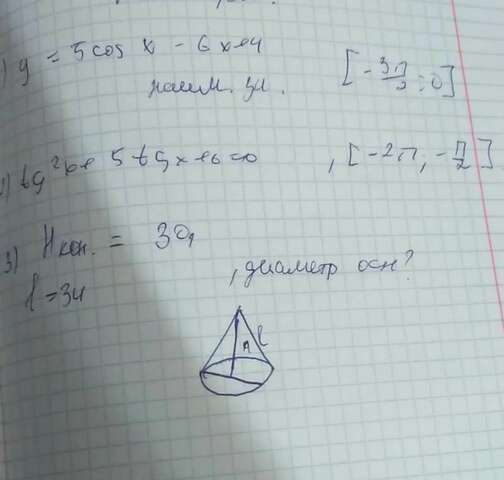 ) y = 5 cos x - 6x+4 [-3π/2; 0]
наим. зн.
2) tg²x + 5 tg x + 6 = 0, [-2π; -π/2]
3) Hкон. = 30,
l = 34, диаметр осн?
l